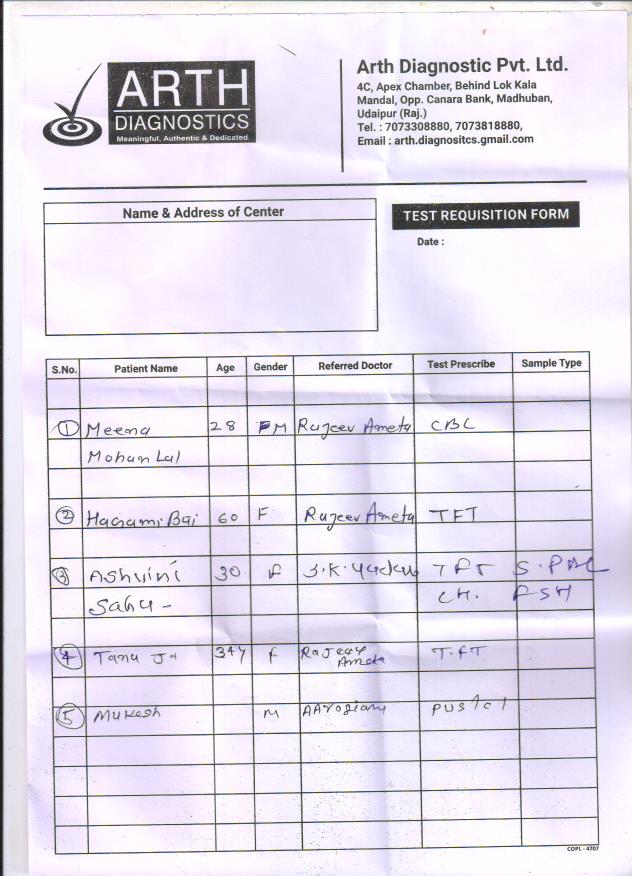 ARTH
DIAGNOSTICS
Meaningful, Authentic & Dedicated
Arth Diagnostic Pvt. Ltd.
4C, Apex Chamber, Behind Lok Kala
Mandal, Opp. Canara Bank, Madhuban,
Udaipur (Raj.)
Tel. : 7073308880, 7073818880,
Email : arth.diagnositcs.gmail.com
Name & Address of Center
TEST REQUISITION FORM
Date :
S.No. Patient Name Age Gender Referred Doctor Test Prescribe Sample Type
1 Meena 28 M Rajeev Ameta CBC
Mohan Lal
2 Hagami Bai 60 F Rajeev Ameta TFT
3 Ashvini 30 F S.K. Yadav TFT S. PRL
Sahu - LH. FSH
4 Tanu Ja 34Y F Rajeev
Ameta T.FT
5 Mukesh M PUS
COPL - 4707